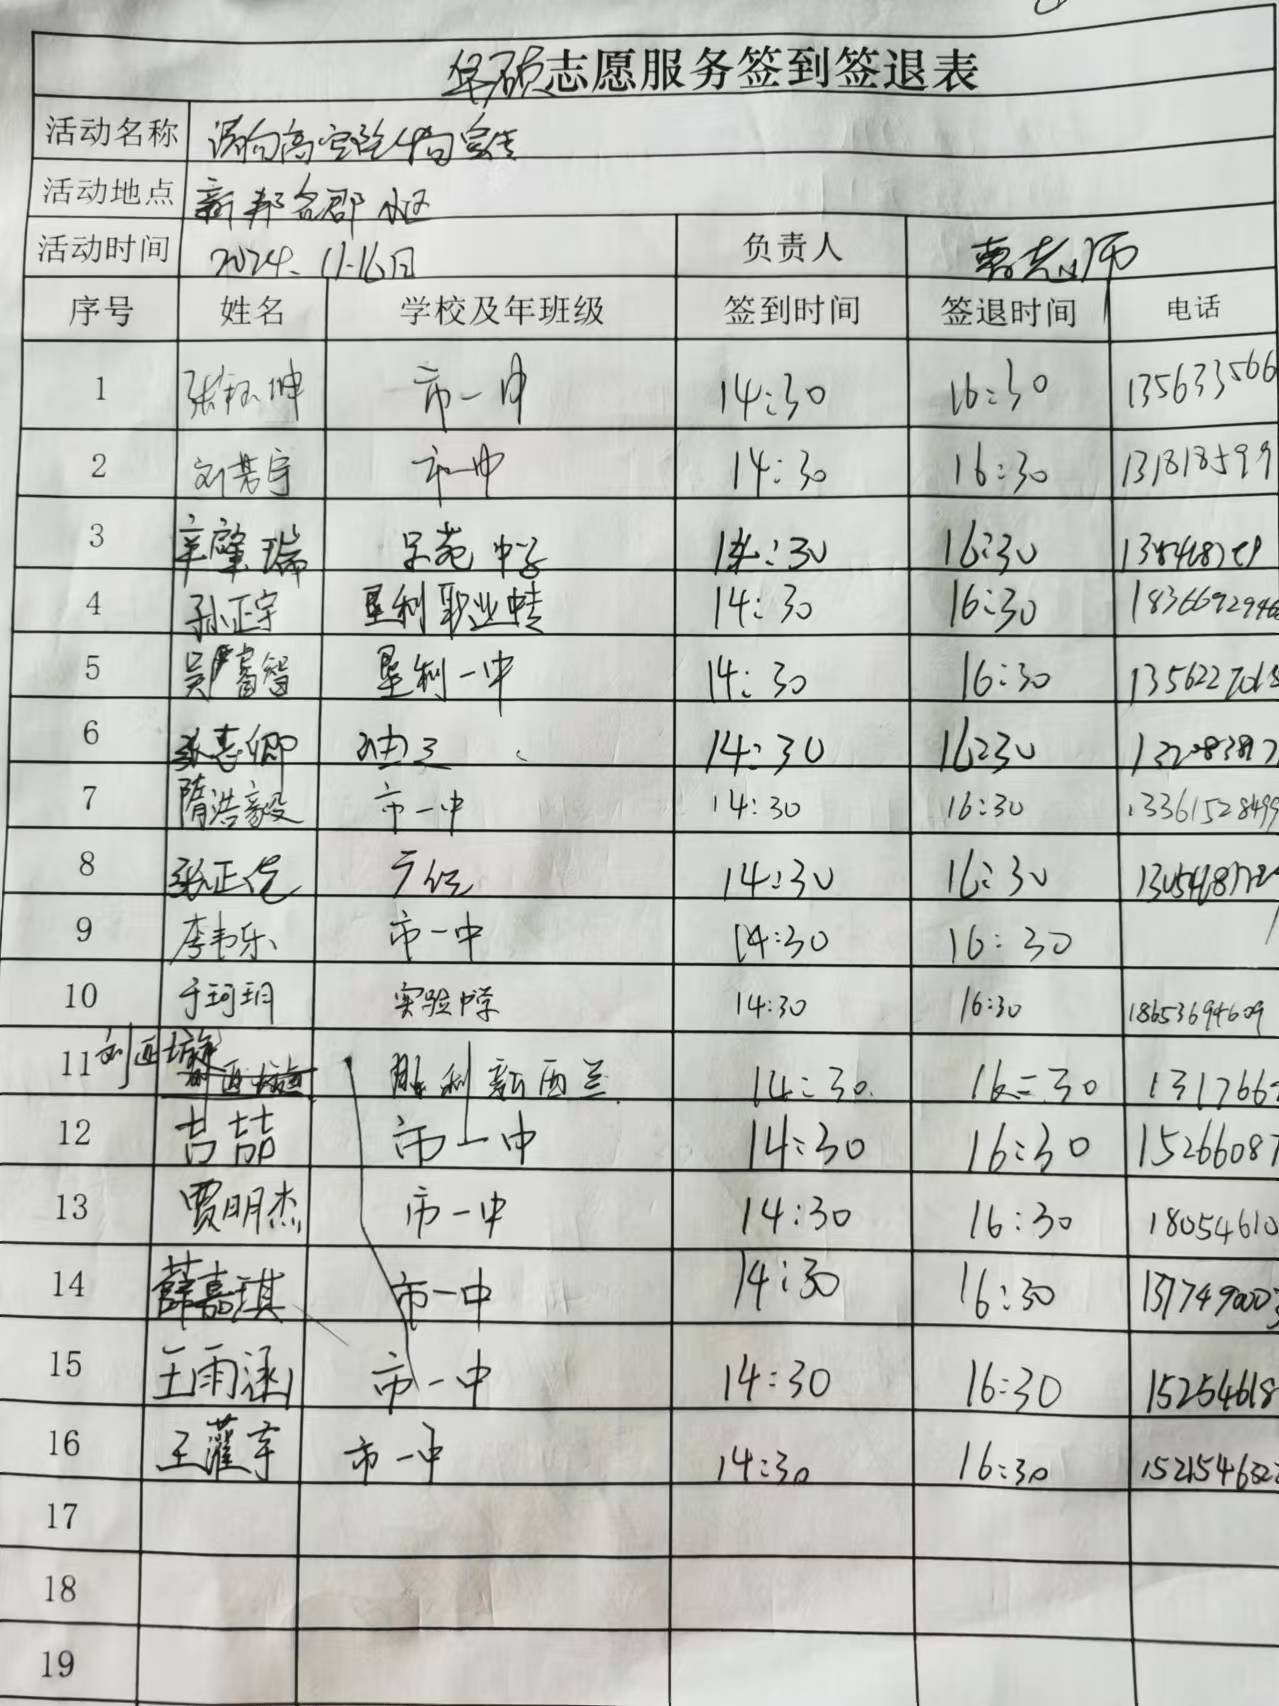 华硕志愿服务签到签退表
活动名称
活动地点 新邦名郡小区
活动时间 2024.11.16日 负责人 曹老师
序号 姓名 学校及年班级 签到时间 签退时间 电话
1 市一中 14:30 16:30 135633566
2 市一中 14:30 16:30 131818599
3 辛肇瑞 14:30 16:30
4 孙正宇 垦利职业中专 14:30 16:30 1836692946
5 垦利一中 14:30 16:30
6 14:30 16:30
7 隋浩毅 市一中 14:30 16:30 13361528499
8 14:30 16:30
9 李韦乐 市一中 14:30 16:30
10 于珂玥 实验中学 14:30 16:30 18653694609
11 胜利新西兰 14:30 16:30 131766
12 吉喆 市一中 14:30 16:30 15266087
13 贾明杰 市一中 14:30 16:30 18054610
14 薛嘉琪 市一中 14:30 16:30
15 王雨涵 市一中 14:30 16:30 15254618
16 市一中 14:30 16:30
17
18
19